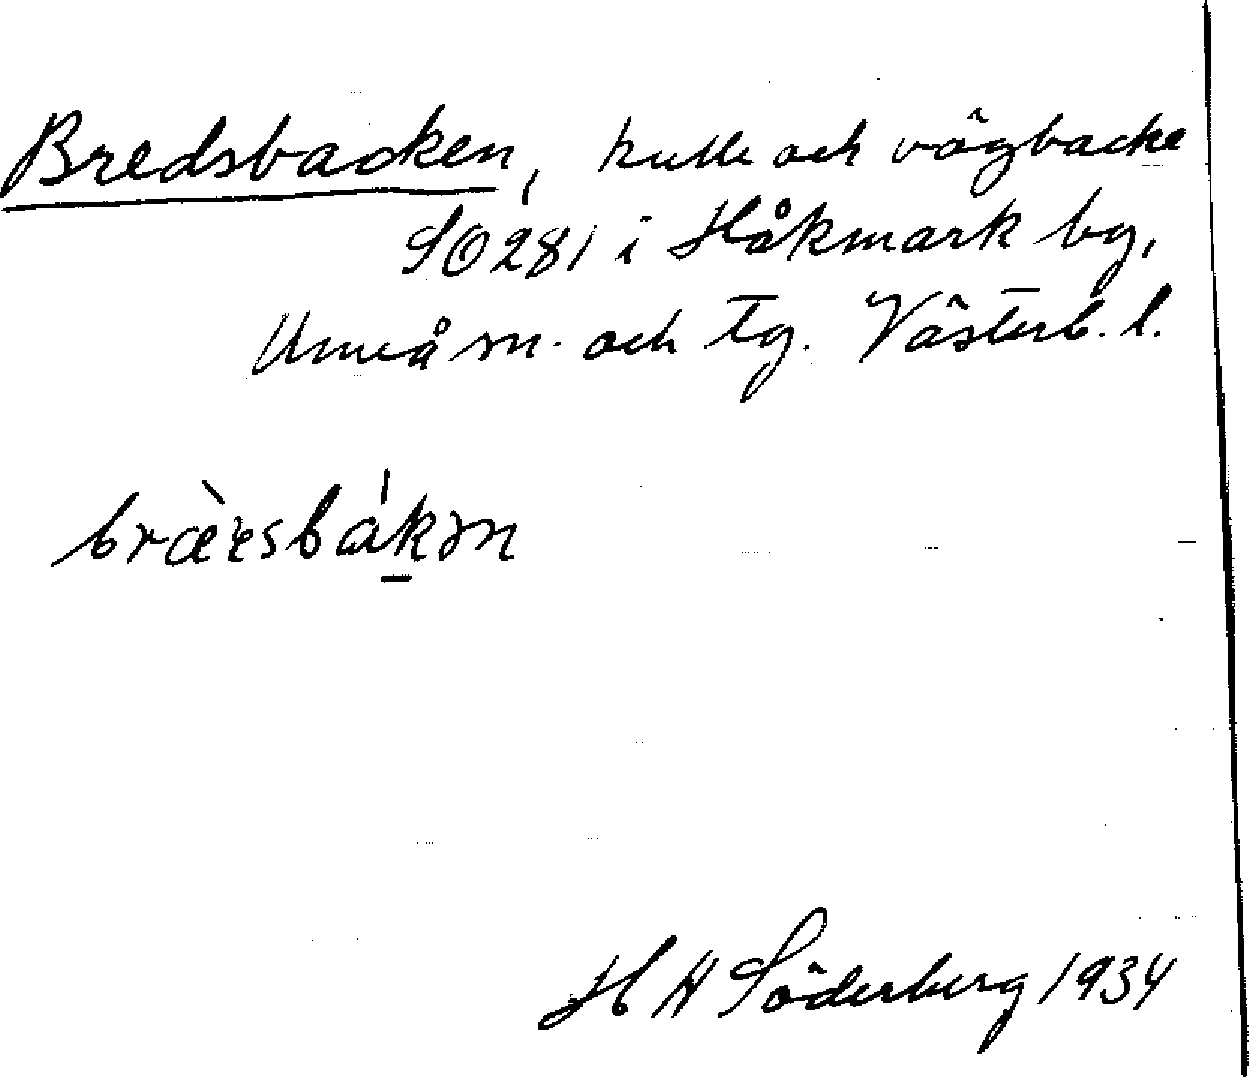 Bredsbacken, kulle och vägbacke
SO 281 i Håkmark by,
Umeå sn. och tg. Västerb. l.
bræ̀rsbákən
H N Söderberg 1934